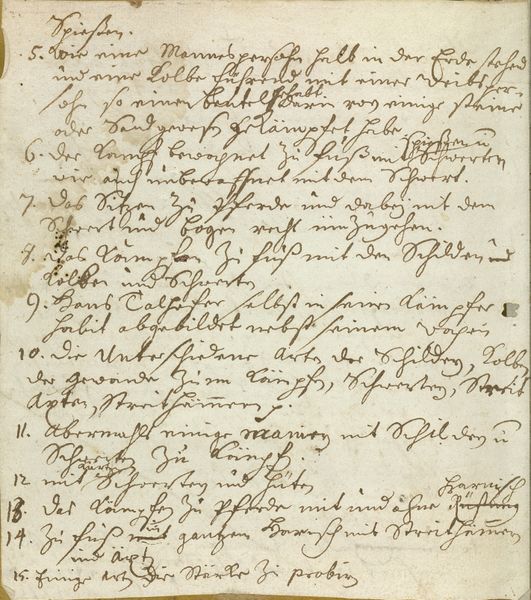 Spießen.
5. Wie eine Mannspersohn halb in der Erde stehed
und eine Kolbe führend mit einer Weibsper-
sohn so einen beutel gehabt darin von einige steine
oder Sand gewesen gekämpfet habe
6. der Kampf bewapnet zu fuß mit Spießen u Schwerten
wie auch unbewaffnet mit dem Schwert.
7. das Sitzen zu Pferde und dabei mit dem
Schwert und bogen recht umzugehen.
8. das Kämpfen zu fuß mit den Schilden und
Kolben und Schwerten
9. Hans Talhofer selbst in seinen Kämpfer
habit abgebildet nebst seinem Wapen
10. die Unterschiedene Arten der Schilden, Kolben
der gewände zum Kämpfen, Schwerten, Streit
Axten, Streithämmern p.
11. Abermahls einige Manier mit Schilden u
Schwerten zu Kämpf.
12. mit kurtzen Schwerten und Hüten
13. das Kämpfen zu Pferde mit und ohne Rüstung Harnisch
14. Zu fuß mit gantzen Harnisch mit Streithämmern
und Axt
15. Einige arten die Stärke zu probirn